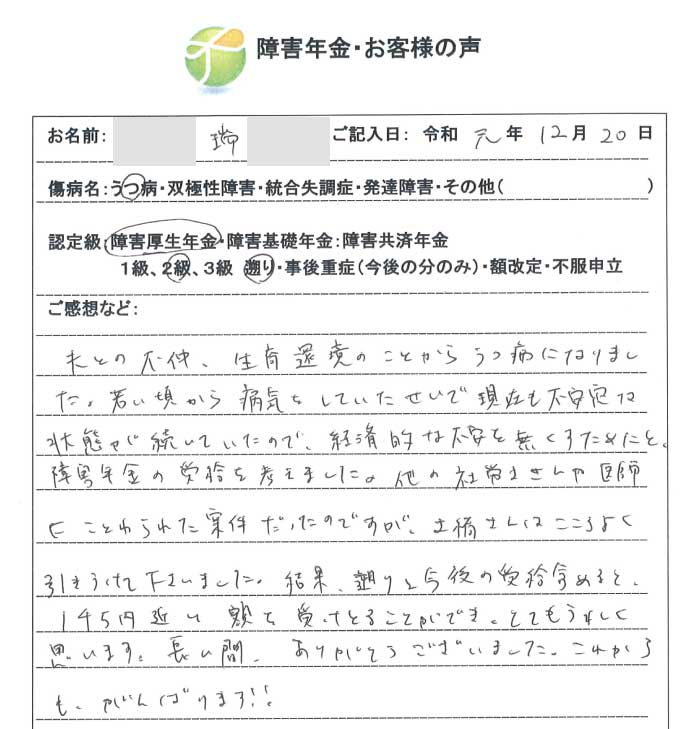 障害年金・お客様の声
お名前: 瑞 ご記入日: 令和 元 年 12 月 20 日
傷病名:うつ病・双極性障害・統合失調症・発達障害・その他( )
認定級:障害厚生年金・障害基礎年金:障害共済年金
1級、2級、3級 遡り・事後重症(今後の分のみ)・額改定・不服申立
ご感想など:
夫との不仲、生育還境のことからうつ病になりまし
た。若い頃から病気をしていたせいで現在も不安定な
状態が続いていたので、経済的な不安を無くすためにと、
障害年金の受給を考えました。他の社労士さんや医師
にことわられた案件だったのですが、土橋さんはこころよく
引きうけて下さいました。結果、遡りと今後の受給含めると、
145円近い額を受けとることができ、とてもうれしく
思います。長い間、ありがとうございました。これから
も、がんばります!!